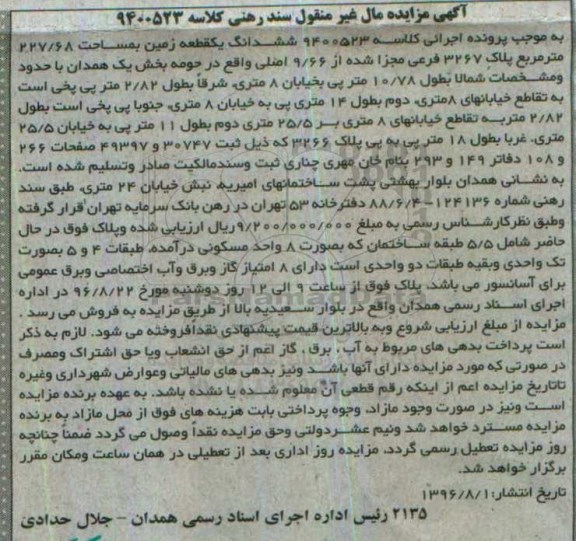 آگهی مزایده مال غیر منقول سند رهنی کلاسه ۹۴۰۰۵۲۳
به موجب پرونده اجرائی کلاسه ۹۴۰۰۵۲۳ ششدانگ یکقطعه زمین بمساحت ۲۲۷/۶۸
مترمربع پلاک ۳۲۶۷ فرعی مجزا شده از ۹/۶۶ اصلی واقع در حومه بخش یک همدان با حدود
ومشخصات شمالا بطول ۱۰/۷۸ متر پی بخیابان ۸ متری، شرقا بطول ۲/۸۲ متر پی پخی است
به تقاطع خیابانهای ۸متری، دوم بطول ۱۴ متری پی به خیابان ۸ متری، جنوبا پی پخی است بطول
۲/۸۲ متربه تقاطع خیابانهای ۸ متری بر ۲۵/۵ متری دوم بطول ۱۱ متر پی به خیابان ۲۵/۵
متری، غربا بطول ۱۸ متر پی به پی پلاک ۳۲۶۶ که ذیل ثبت ۳۰۷۴۷ و ۴۹۳۹۷ صفحات ۲۶۶
و ۱۰۸ دفاتر ۱۴۹ و ۲۹۳ بنام خان مهری چناری ثبت وسندمالکیت صادر وتسلیم شده است.
به نشانی همدان بلوار بهشتی پشت ساختمانهای امیریه، نبش خیابان ۲۴ متری، طبق سند
رهنی شماره ۱۲۴۱۳۶-۸۸/۶/۴ دفترخانه ۵۳ تهران در رهن بانک سرمایه تهران قرار گرفته
وطبق نظرکارشناس رسمی به مبلغ ۹/۲۰۰/۰۰۰/۰۰۰ریال ارزیابی شده وپلاک فوق در حال
حاضر شامل ۵/۵ طبقه ساختمان که بصورت ۸ واحد مسکونی درآمده، طبقات ۴ و ۵ بصورت
تک واحدی وبقیه طبقات دو واحدی است دارای ۸ امتیاز گاز وبرق وآب اختصاصی وبرق عمومی
برای آسانسور می باشد، پلاک فوق از ساعت ۹ الی ۱۲ روز دوشنبه مورخ ۹۶/۸/۲۲ در اداره
اجرای اسناد رسمی همدان واقع در بلوار سعیدیه بالا از طریق مزایده به فروش می رسد.
مزایده از مبلغ ارزیابی شروع وبه بالاترین قیمت پیشنهادی نقدافروخته می شود. لازم به ذکر
است پرداخت بدهی های مربوط به آب، برق، گاز اعم از حق انشعاب ویا حق اشتراک ومصرف
در صورتی که مورد مزایده دارای آنها باشد ونیز بدهی های مالیاتی وعوارض شهرداری وغیره
تاتاریخ مزایده اعم از اینکه رقم قطعی آن معلوم شده یا نشده باشد، به عهده برنده مزایده
است ونیز در صورت وجود مازاد، وجوه پرداختی بابت هزینه های فوق از محل مازاد به برنده
مزایده مسترد خواهد شد ونیم عشردولتی وحق مزایده نقداً وصول می گردد ضمناً چنانچه
روز مزایده تعطیل رسمی گردد، مزایده روز اداری بعد از تعطیلی در همان ساعت ومکان مقرر
برگزار خواهد شد.
تاریخ انتشار: ۱۳۹۶/۸/۱
۲۱۳۵ رئیس اداره اجرای اسناد رسمی همدان - جلال حدادی